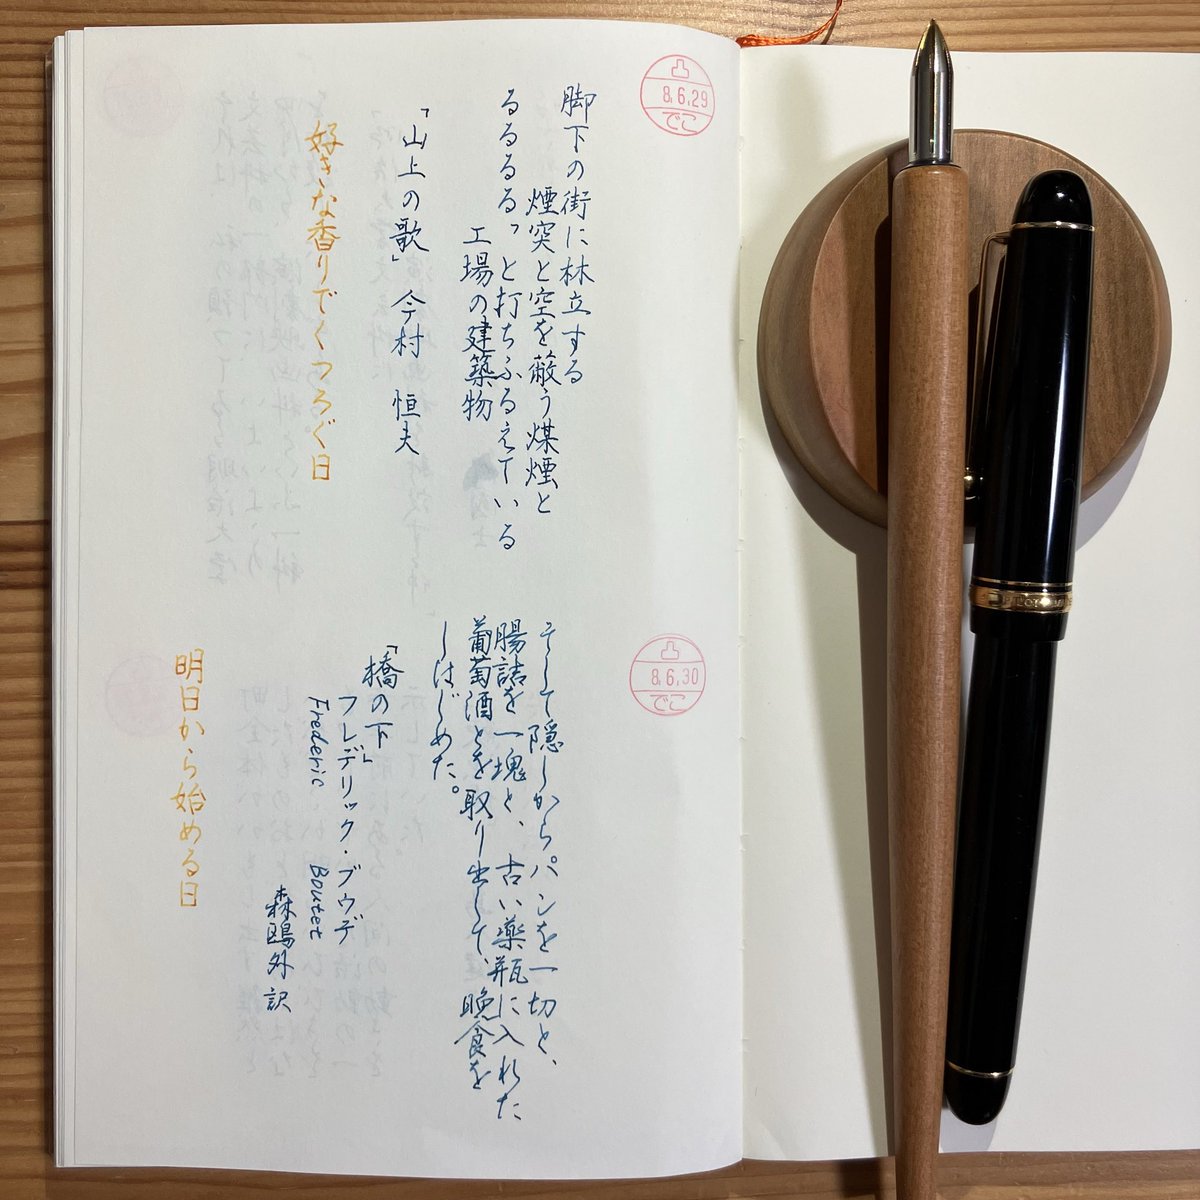 凸
8.6.29
でこ
脚下の街に林立する
煙突と空を蔽う煤煙と
るるるる、と打ちふるえている
工場の建築物
「山上の歌」 今村 恒夫
好きな香りでくつろぐ日
凸
8.6.30
でこ
そして隠しからパンを一切と、
腸詰を一塊と、古い薬瓶に入れた
葡萄酒とを取り出して、晩食を
しはじめた。
「橋の下」
フレデリック・ブウデ
Frederic Boutet
森鴎外 訳
明日から始める日